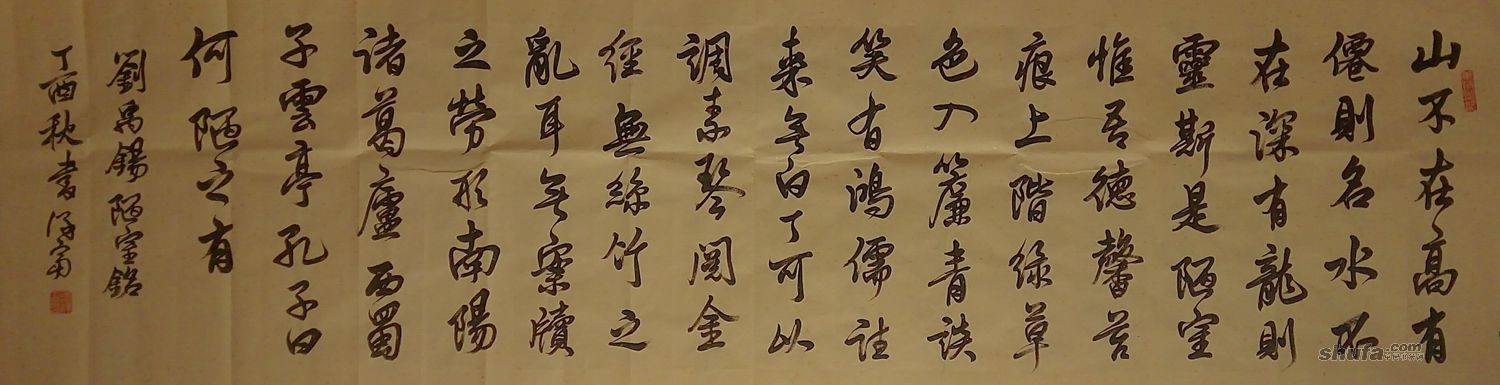 山不在高有
僊則名水不
在深有龍則
靈斯是陋室
惟吾德馨苔
痕上階綠草
色入簾青談
笑有鴻儒往
来无白丁可以
調素琴閱金
經無絲竹之
亂耳无案牘
之勞形南陽
諸葛廬西蜀
子雲亭孔子曰
何陋之有
劉禹錫陋室銘
丁酉秋書
shufa.com